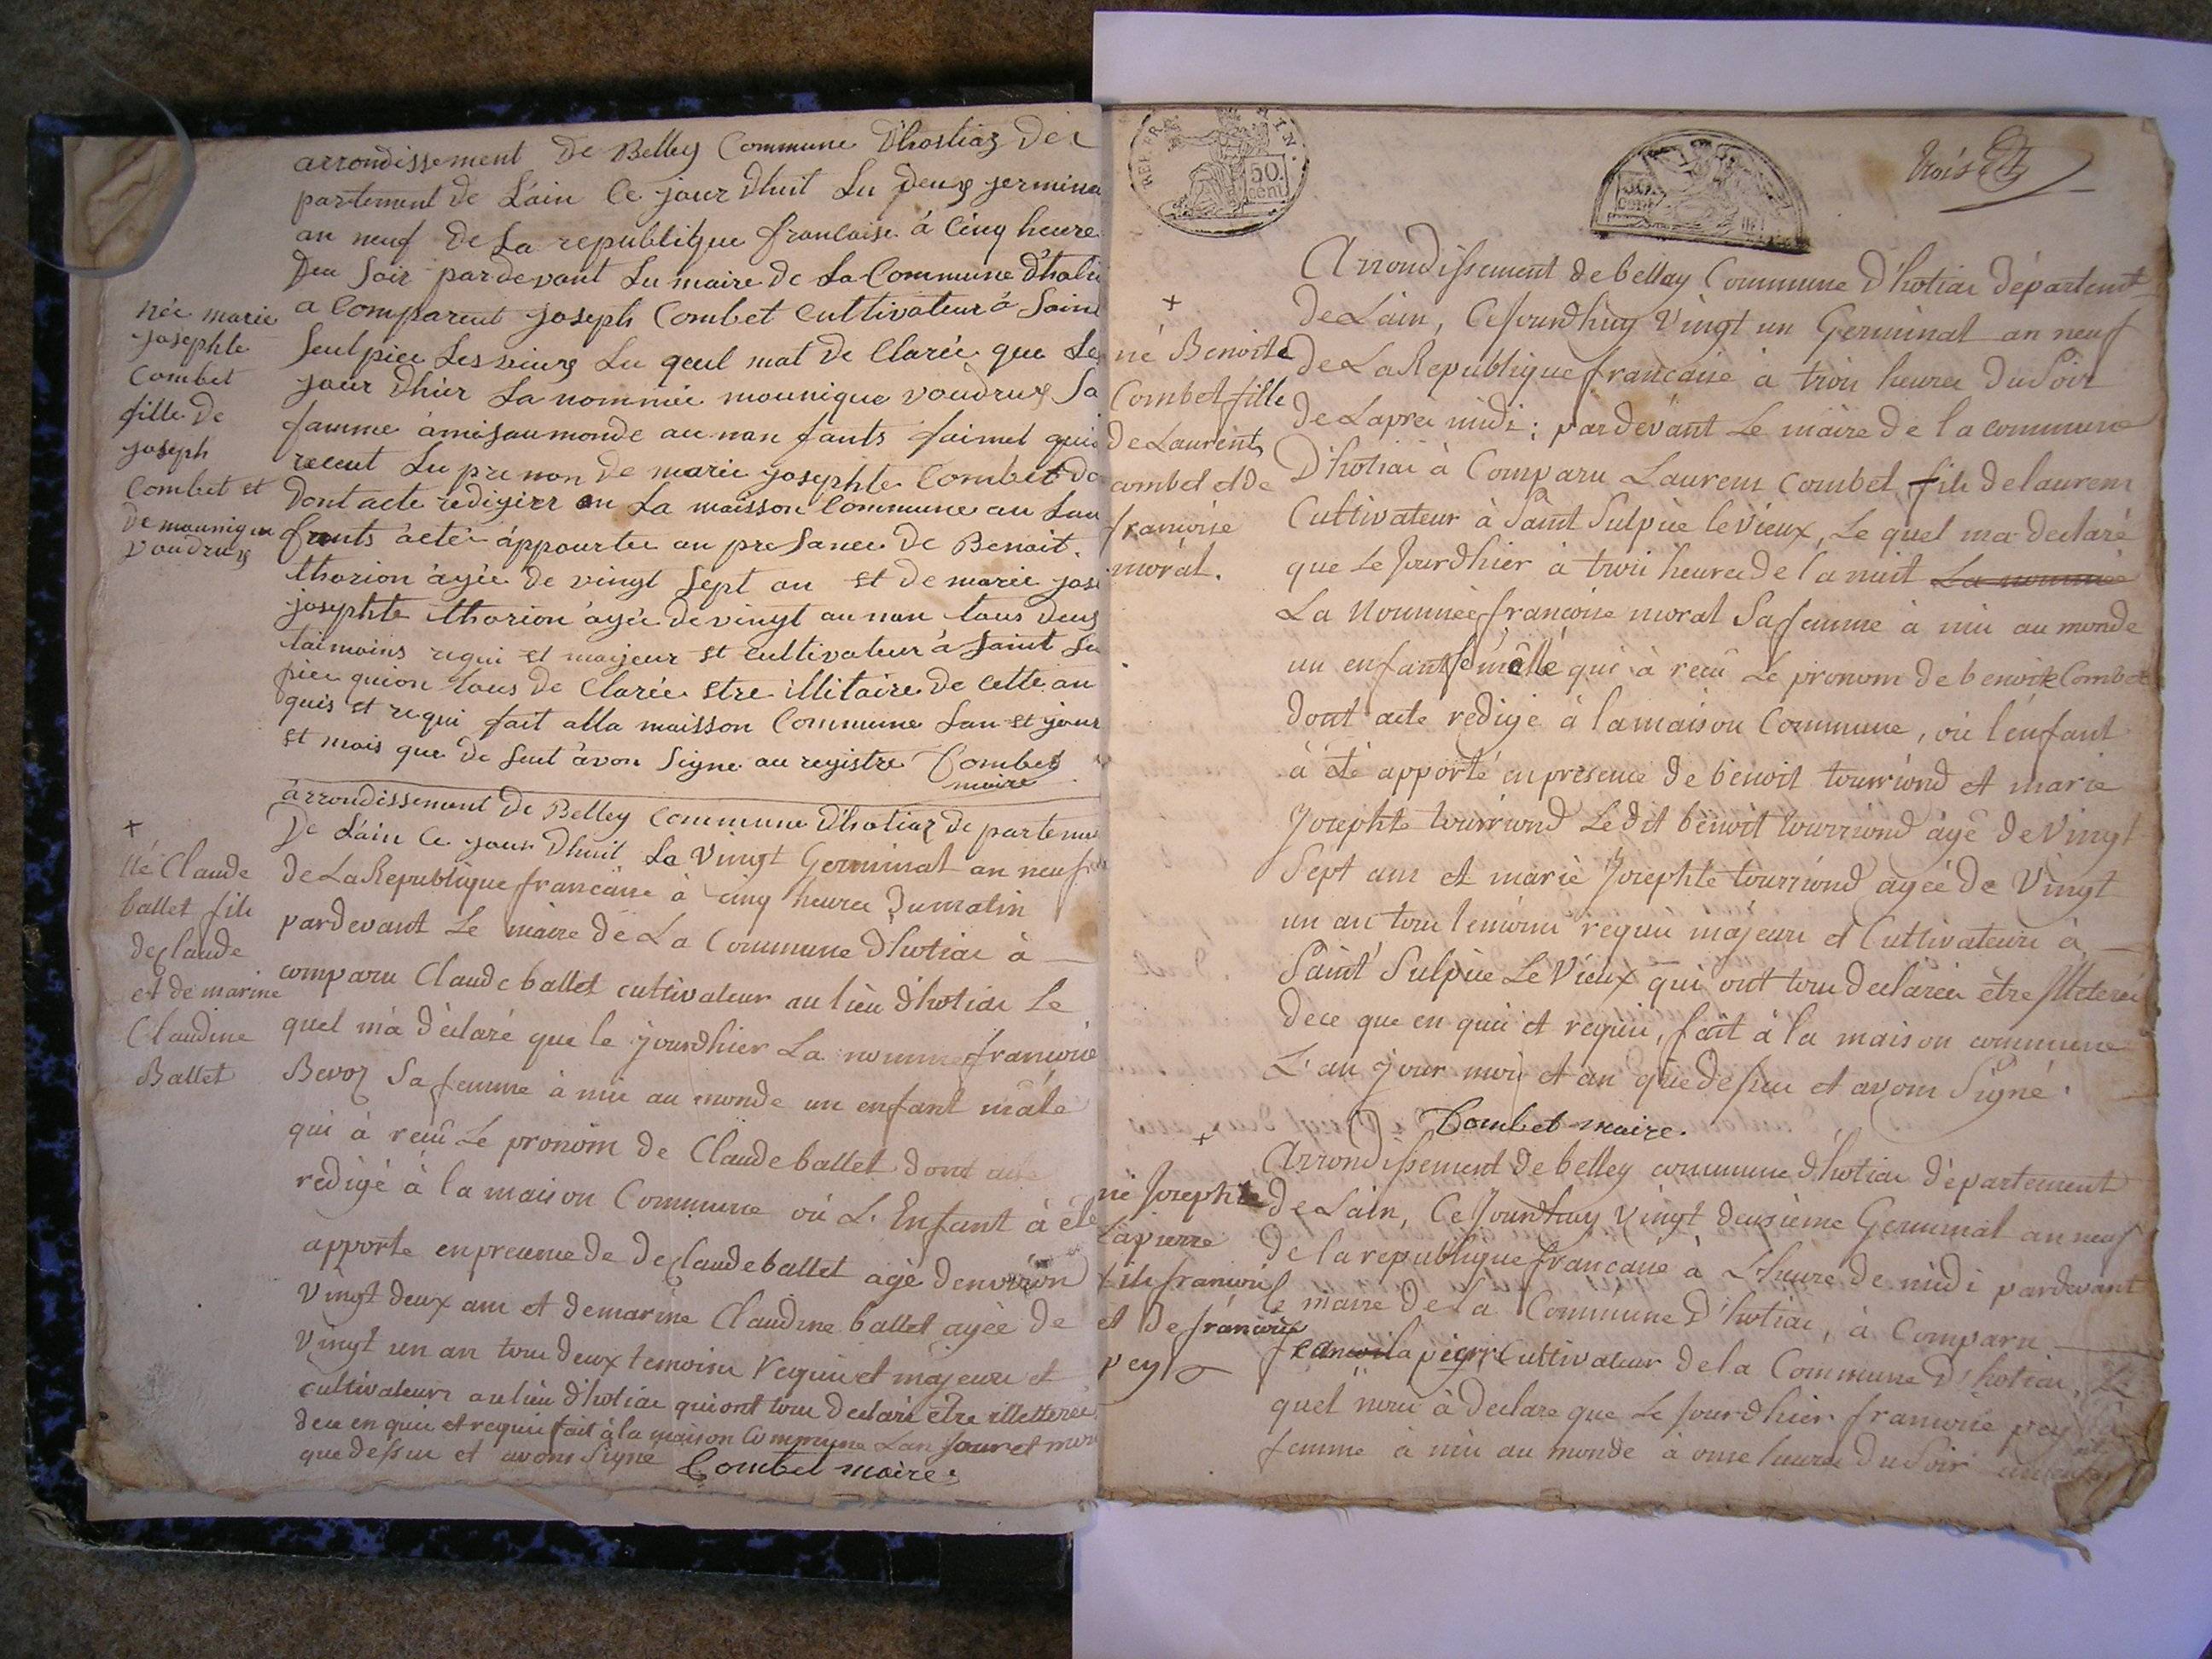 arrondissement De Belley Commune D'hostiaz De
partement de L'ain Ce jour Dhuit Lu Deux jermina
an neuf de La republitque francaise à Cinq heure
Deu Soir pardevant Lu maire de La Commune D'hotia
née marie
josephte
Combet
fille de
joseph
Combet et
De mounique
voudrux
a Comparut joseph Combet Cultivateur à Saint
Seulpice Les vieux Lu qeul mat de Clarée que Le
jour Dhier La nommée mounique voudrux Sa
famme àmisaumonde au nan fants faimel qui
receut Lu prenon De marie josephte Combet do
Dont acte redigierr en La maisson Commune au Lan
fants àetè àppourtee an presance De Benoit
thorion àgée de vingt Sept an et De marie jose
josephte thorion àgée de vingt au nan tous Deux
taimoins requi et maijeur et cultivateur à Saint Su
pice quion tous de Clarée etre illitaire De cette an
quis et requi fait alla maisson Commune Lan et jour
et mois que de Seut àvon Signe au registre Combet
maire
arrondissement De Belley Commune D'hotiaz departeme
De L'ain Ce jour Dhuit Le Vingt Germinal an neuf
+
né Claude
ballet fils
de claude
et de marine
Claudine
Ballet
de La Republique francaise à cinq heures Du matin
pardevant Le maire de La Commune D'hotiac à
comparu Claude ballet cultivateur au lieu d'hotiac Le
quel m'à déclaré que le jourdhier La nommée francoise
Bevoz Sa femme à mis au monde un enfant mâle
qui à recu Le pronom de Claude ballet dont acte
redigé à la maison Commune où L'Enfant à été
apporte en presence de de claude ballet agé denviron
Vingt deux ans et de marine Claudine ballet agée de
Vingt un an tous deux temoins requis et majeurs et
cultivateurs au lieu d'hotiac qui ont tous declaré être illetterés
de ce en quis et requis fait à la maison Commune L'an jour et mois
que dessus et avons Signé Combet maire.
REP. FRA.
50
cent
50
cent
trois
Arrondissement de bellay Commune D'hotiac départemt
de Lain, Ce jourdhuy Vingt un Germinal an neuf
+
né Benoite
Combet fille
de Laurent
combet et de
francoise
morat.
de La Republique francaise à trois heures Du Soir
de Lapres midi ; par devant Le maire de la commune
D'hotiac à Comparu Laurent Combet fils de laurent
Cultivateur à Saint Sulpice le Vieux, Le quel ma declaré
que Le jourdhier à trois heures de la nuit La nommée
La Nommée francoise morat Sa femme à mis au monde
un enfant femelle qui à recû Le pronom de benoite Combet
dont acte redigé à la maison Commune, où l'enfant
à été apporté en presence de benoit tourriond et marie
Josephte tourriond Le dit benoit tourriond âgé de Vingt
Sept ans et marie Josephte tourriond agée de Vingt
un an tous temoins requis majeurs et Cultivateurs à
Saint Sulpice Le Vieux qui ont tous declarés être illeterés
de ce que en quis et requis, fait à la maison commune
L'an jour mois et an que dessus et avons Signé.
Combet maire.
+
Arrondissement de belley commune d'hotiac département
né Josephte
Lapierre
fils francois
et De francoise
pey
de Lain, Ce Jourdhuy Vingt deusième Germinal an neuf
de la republique francaise à L'heure de midi pardevant
le maire de la Commune D'hotiac, à Comparu
Cultivateur de la Commune D'hotiac, Le
quel nous à declaré que Le Jourdhier francoise pey Sa
femme à mis au monde à onse heures Du Soir un enfant